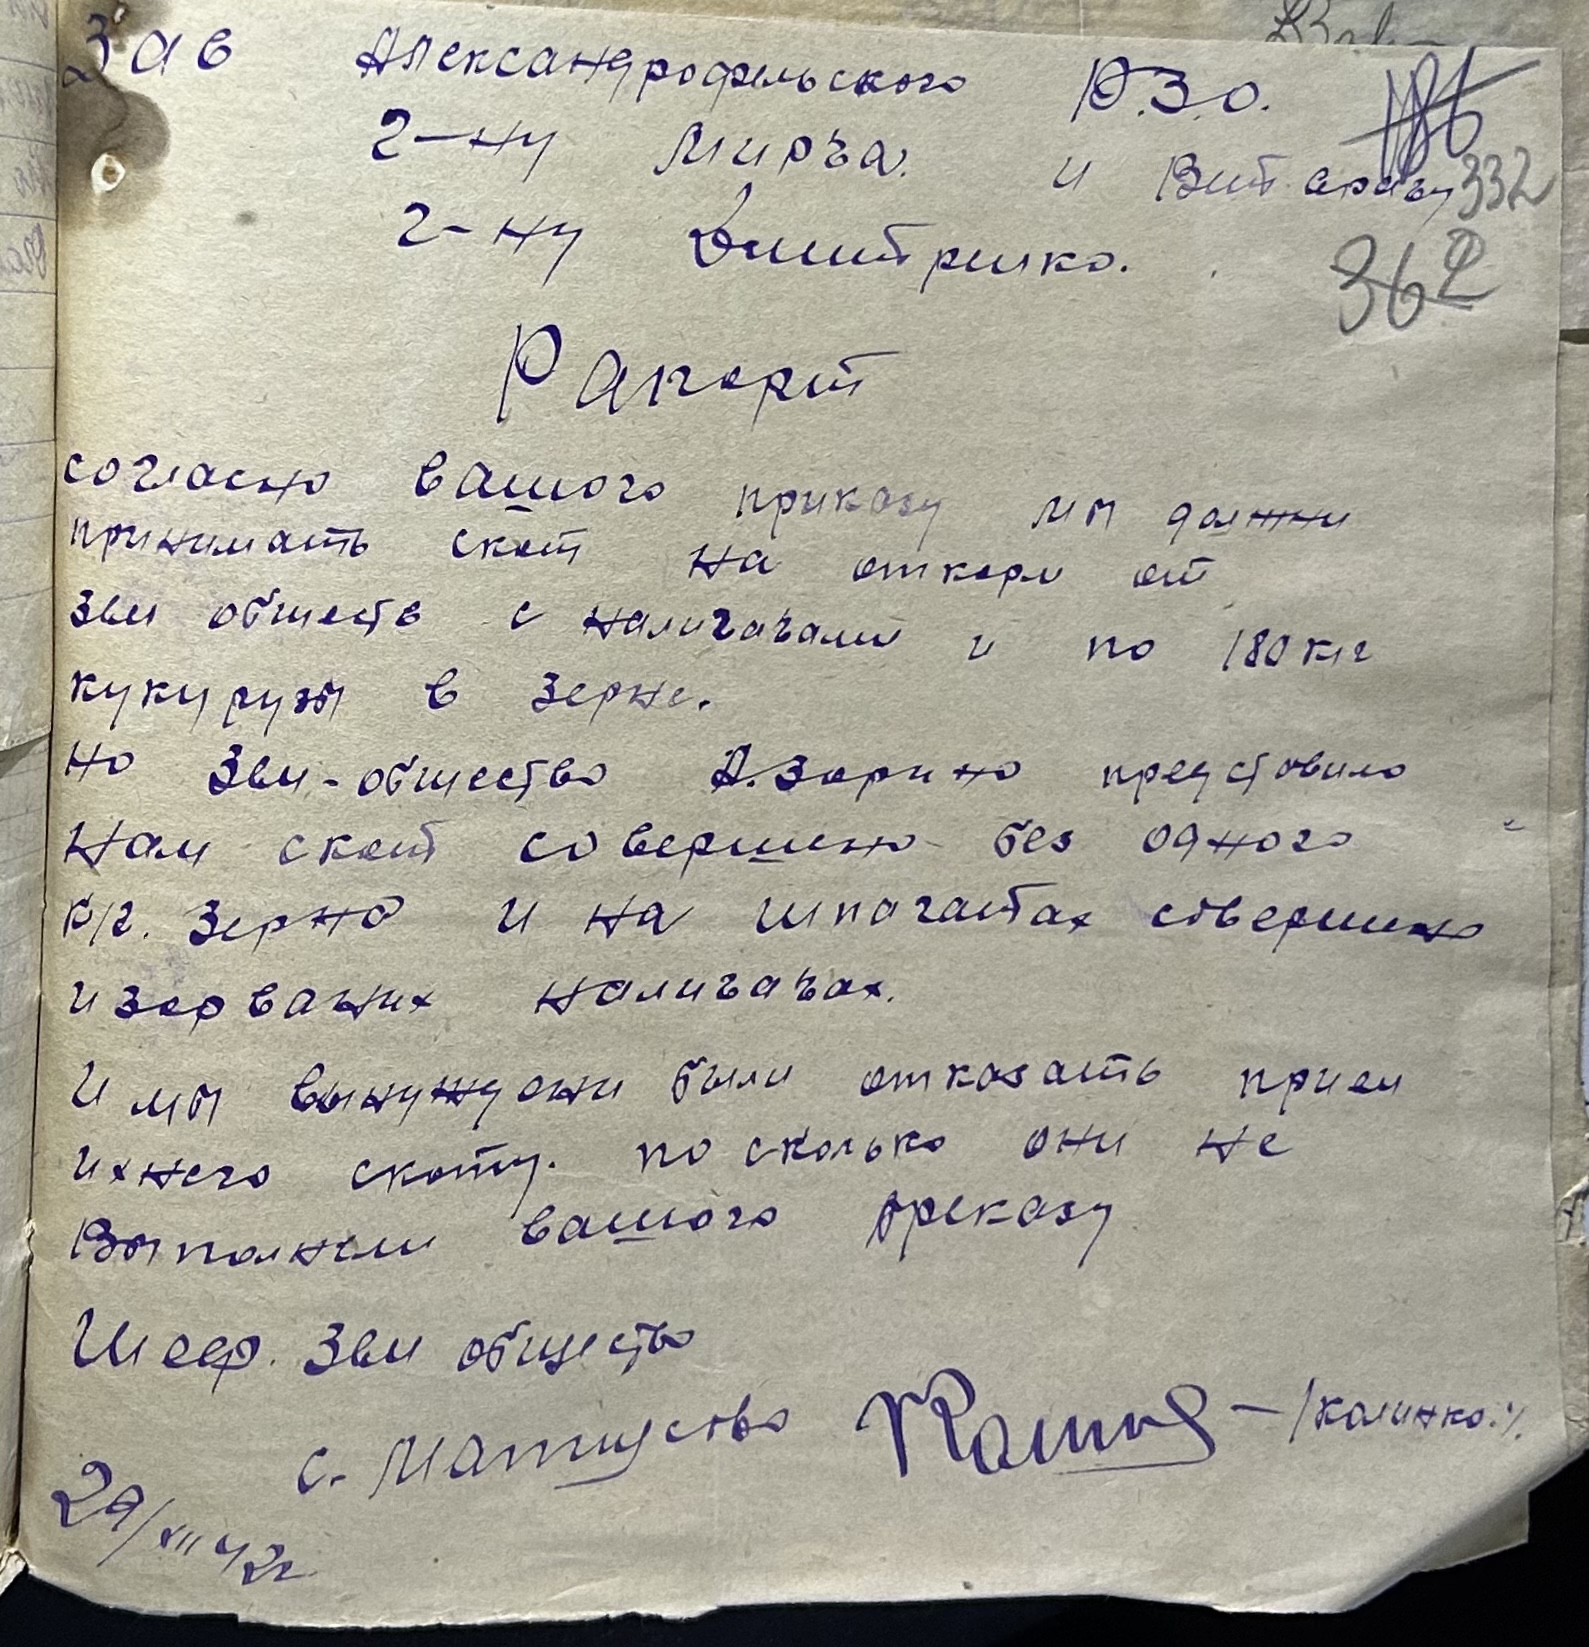 Зав Александрофельского Р.З.О.
г-ну Мирча. и Вит врачу 332
г-ну Дмитренко.
362
Рапорт
согласно вашого приказу мы должни
принимать скот на откорм от
Зем обществ с налигачами и по 180 клг
кукурузы в зерне.
но Зем-общество А.Зорино представило
нам скот совершено без одного
к/г. зерна и на шпагатах совершено
изорваних налигачах.
И мы вынуждени были отказать прием
ихнего скоту. по сколько они не
выполнели вашого преказу
Шеф. Зем общество
с. Матишство /Калинко./
29/XII 42г